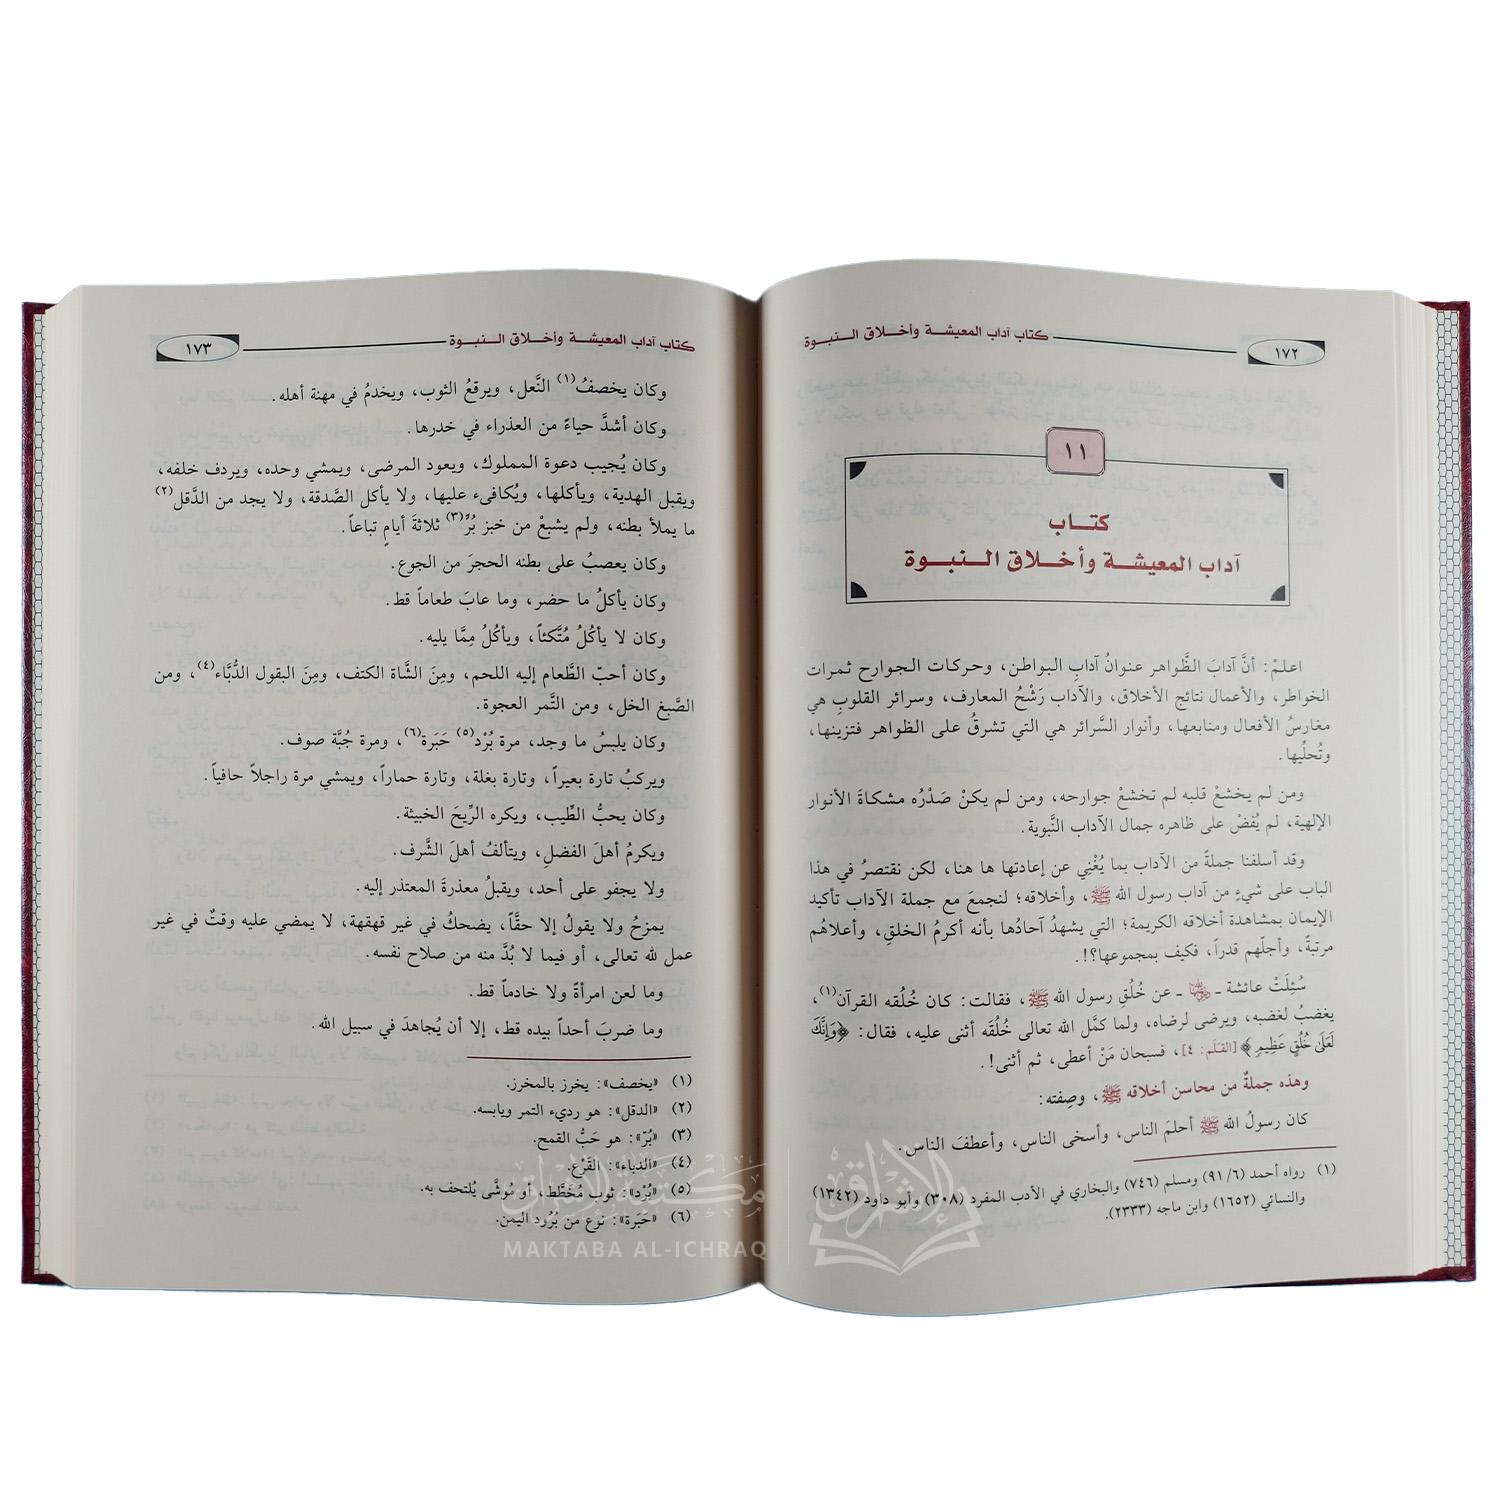 ١٧٢
كتاب آداب المعيشة وأخلاق النبوة
١١
كتاب
آداب المعيشة وأخلاق النبوة
اعلمْ: أنَّ آدابَ الظَّواهر عنوانُ آدابِ البواطن، وحركات الجوارح ثمرات
الخواطر، والأعمال نتائج الأخلاق، والآداب رَشْحُ المعارف، وسرائر القلوبِ هي
مغارسُ الأفعال ومنابعها، وأنوار السَّرائر هي التي تشرقُ على الظواهر فتزينها،
وتُحلِّيها.
ومن لم يخشعْ قلبه لم تخشعْ جوارحه، ومن لم يكنْ صَدْرُه مشكاةَ الأنوار
الإلهية، لم يُفضْ على ظاهره جمال الآداب النَّبوية.
وقد أسلفنا جملةً من الآداب بما يُغْنِي عن إعادتها ها هنا، لكن نقتصرُ في هذا
الباب على شيءٍ من آداب رسول الله ﷺ، وأخلاقه؛ لنجمعَ مع جملة الآداب تأكيد
الإيمان بمشاهدة أخلاقه الكريمة؛ التي يشهدُ آحادُها بأنه أكرمُ الخلقِ، وأعلاهُم
مرتبةً، وأجلّهم قدراً، فكيف بمجموعها؟!.
سُئِلَتْ عائشة ـ رضي الله عنها ـ عن خُلُقِ رسول الله ﷺ، فقالت: كان خُلُقه القرآن(١)،
يغضبُ لغضبه، ويرضى لرضاه، ولما كمَّل الله تعالى خُلُقَه أثنى عليه، فقال: ﴿وَإِنَّكَ
لَعَلَىٰ خُلُقٍ عَظِيمٍ﴾ [القلم: ٤]، فسبحان مَنْ أعطى، ثم أثنى!.
وهذه جملةٌ من محاسن أخلاقه ﷺ، وصِفته:
كان رسولُ الله ﷺ أحلمَ الناس، وأسخى الناس، وأعطفَ الناس.
(١) رواه أحمد (٩١/٦) ومسلم (٧٤٦) والبخاري في الأدب المفرد (٣٠٨) وأبو داود (١٣٤٢)
والنسائي (١٦٥٢) وابن ماجه (٢٣٣٣).
كتاب آداب المعيشة وأخلاق النبوة
١٧٣
وكان يخصفُ(١) النَّعل، ويرقعُ الثوب، ويخدمُ في مهنة أهله.
وكان أشدَّ حياءً من العذراء في خدرها.
وكان يُجيب دعوة المملوك، ويعود المرضى، ويمشي وحده، ويردف خلفه،
ويقبل الهدية، ويأكلها، ويُكافىء عليها، ولا يأكل الصَّدقة، ولا يجد من الدَّقل(٢)
ما يملأ بطنه، ولم يشبعْ من خبز بُرٍّ(٣) ثلاثةَ أيامٍ تباعاً.
وكان يعصبُ على بطنه الحجرَ من الجوع.
وكان يأكلُ ما حضر، وما عابَ طعاماً قط.
وكان لا يأكُلُ مُتَّكئاً، ويأكُلُ مِمَّا يليه.
وكان أحبّ الطَّعام إليه اللحم، ومِنَ الشَّاة الكتف، ومِنَ البقول الدُّبَّاء(٤)، ومن
الصَّبغ الخل، ومن التَّمر العجوة.
وكان يلبسُ ما وجد، مرة بُرْد(٥) حَبَرة(٦)، ومرة جُبَّة صوف.
ويركبُ تارة بعيراً، وتارة بغلة، وتارة حماراً، ويمشي مرة راجلاً حافياً.
وكان يحبُّ الطِّيب، ويكره الرِّيحَ الخبيثة.
ويكرمُ أهلَ الفضلِ، ويتألفُ أهلَ الشَّرف.
ولا يجفو على أحد، ويقبلُ معذرةَ المعتذر إليه.
يمزحُ ولا يقولُ إلا حقَّاً، يضحكُ في غير قهقهة، لا يمضي عليه وقتٌ في غير
عمل لله تعالى، أو فيما لا بُدَّ منه من صلاح نفسه.
وما لعن امرأةً ولا خادماً قط.
وما ضربَ أحداً بيده قط، إلا أن يُجاهدَ في سبيل الله.
(١) «يخصف»: يخرز بالمخرز.
(٢) «الدقل»: هو رديء التمر ويابسه.
(٣) «بُرّ»: هو حَبُّ القمح.
(٤) «الدباء»: القَرْع.
(٥) «بُرْد»: ثوب مُخَطَّط، أو مُوشَّى يُلتحف به.
(٦) «حَبَرة»: نوع من بُرُد اليمن.
مكتبة الإشراق
MAKTABA AL-ICHRAQ
الإشراق